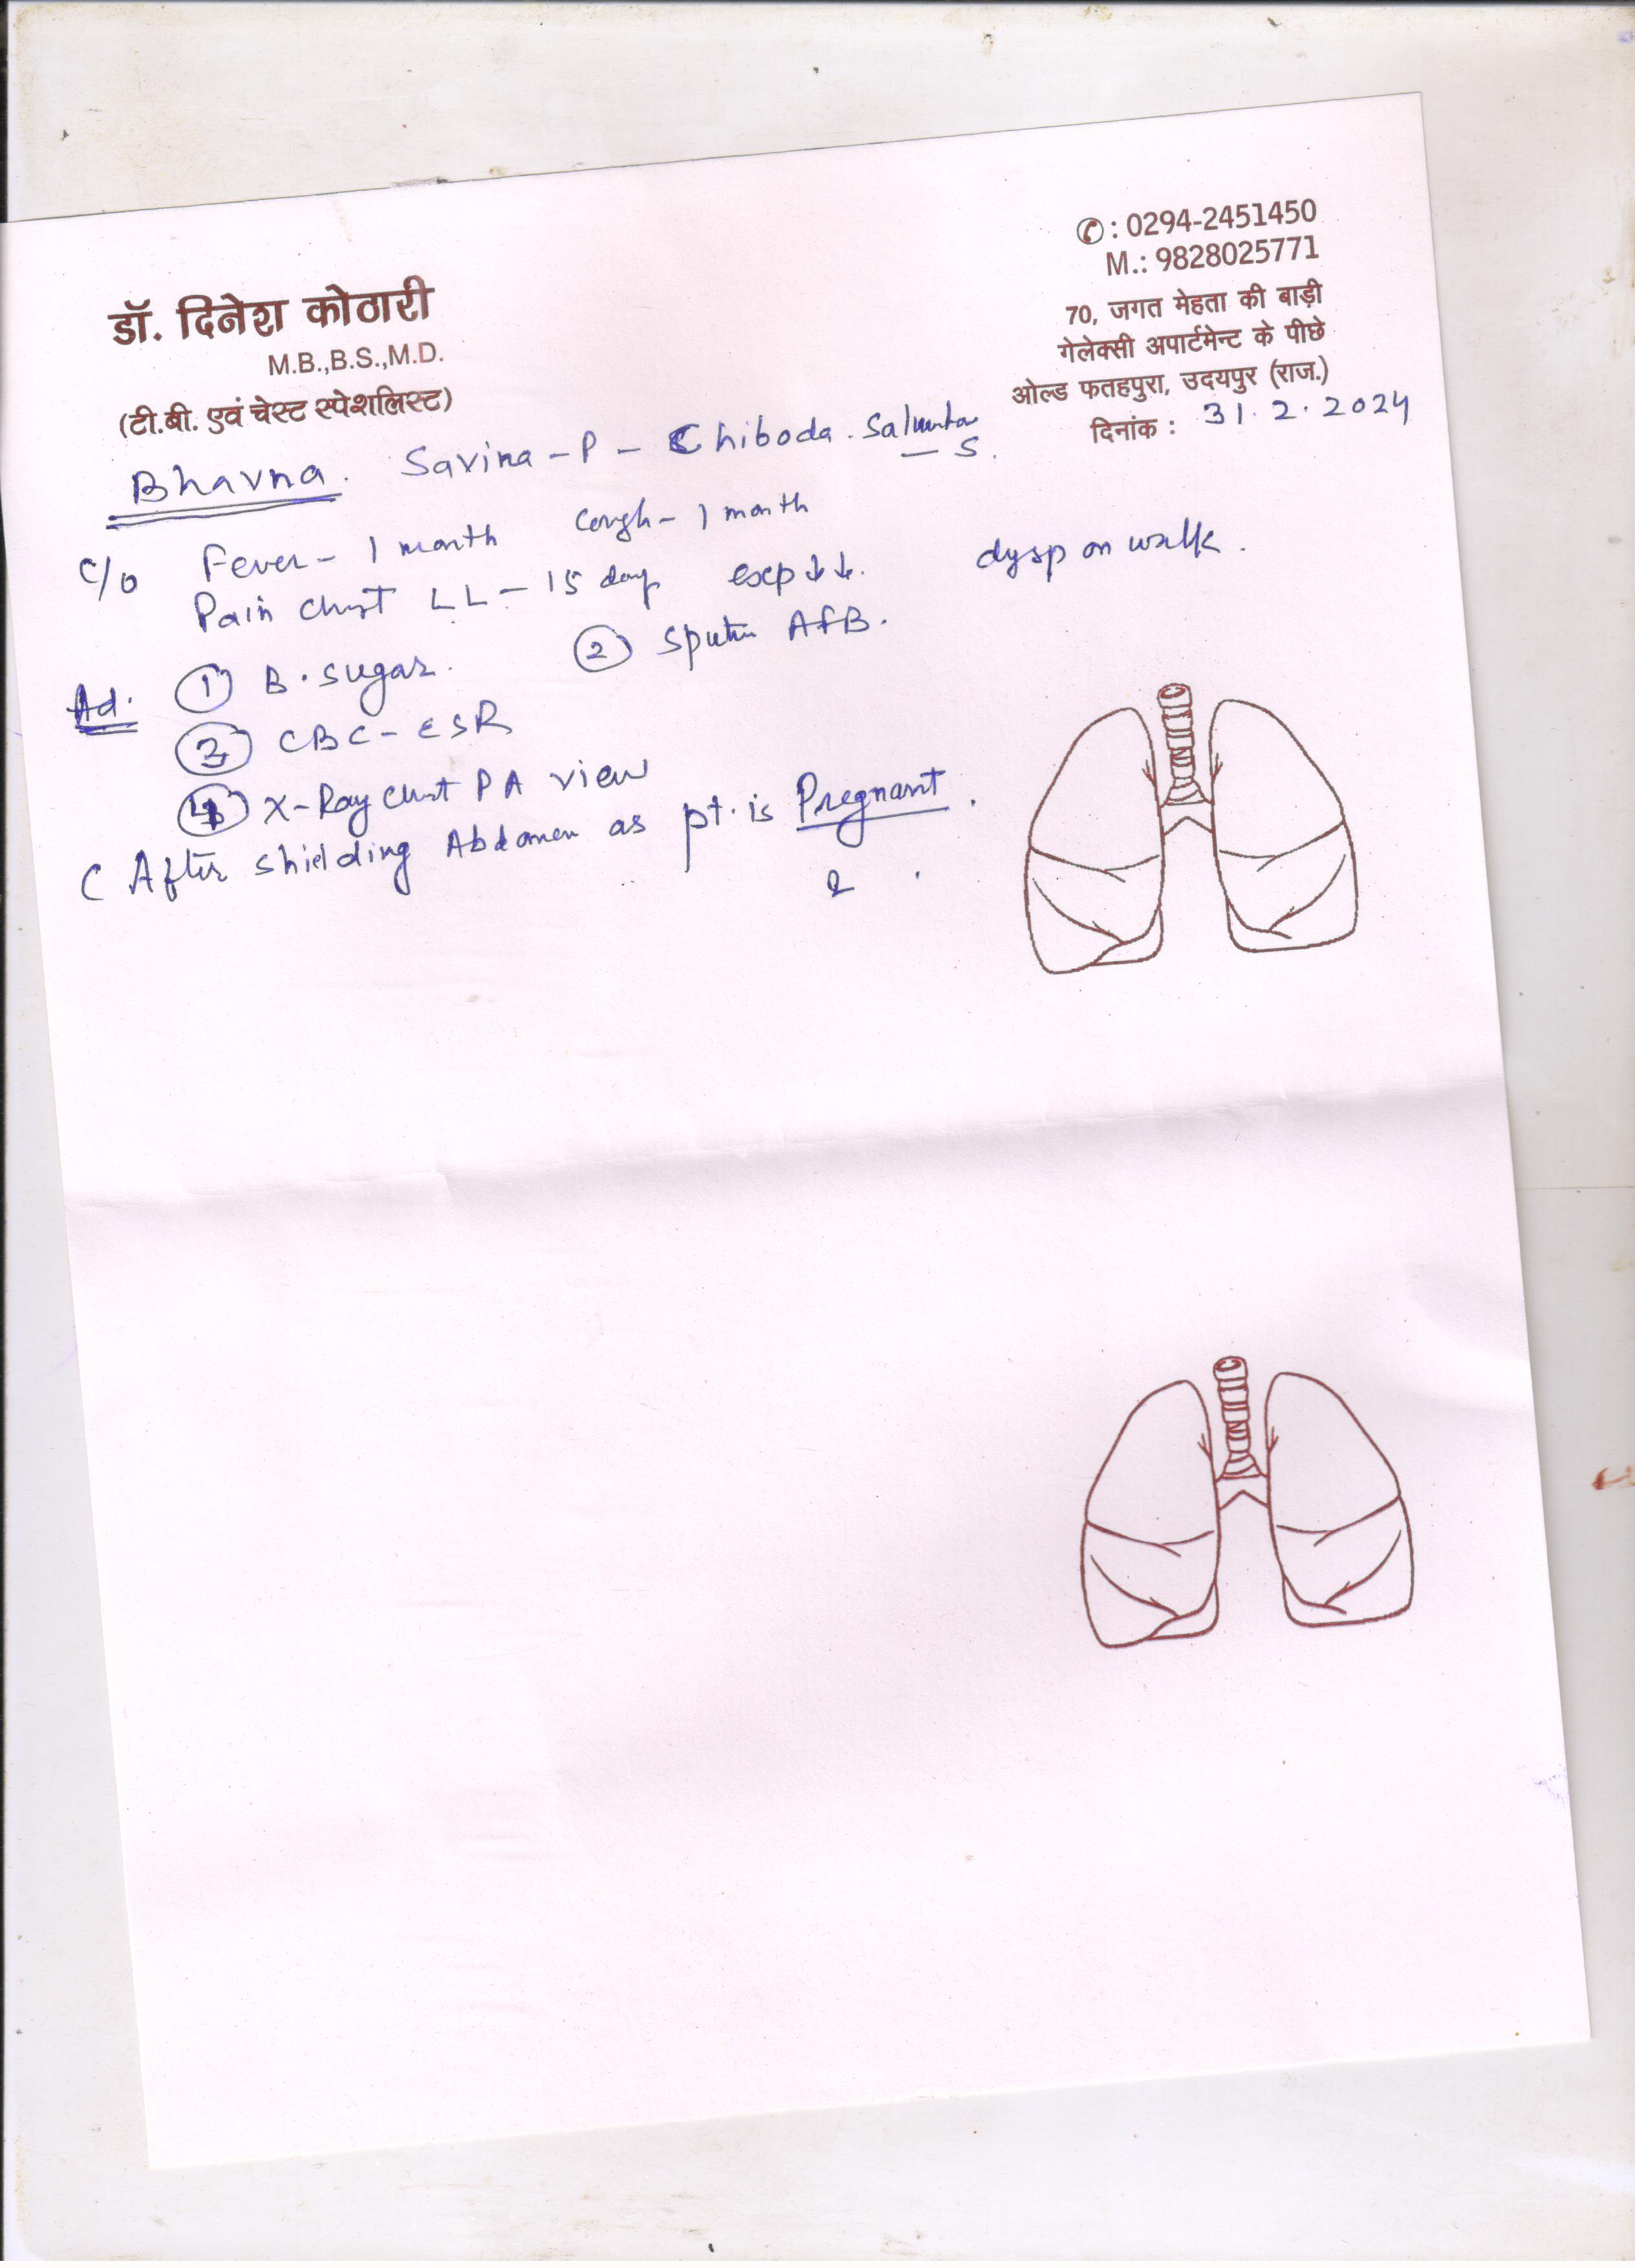 ✆: 0294-2451450
M.: 9828025771
डॉ. दिनेश कोठारी
M.B.,B.S.,M.D.
(टी.बी. एवं चेस्ट स्पेशलिस्ट)
70, जगत मेहता की बाड़ी
गेलेक्सी अपार्टमेन्ट के पीछे
ओल्ड फतहपुरा, उदयपुर (राज.)
दिनांक : 31.2.2024
Bhavna. Savina - P - Chiboda. - S.
C/o Fever - 1 month Cough - 1 month
Pain Chest LL - 15 day exp ↓↓. dysp on walk.
Ad. ① B. sugar. ② Sputm AFB.
③ CBC - ESR
④ X-Ray Chest PA view
( After shielding Abdomen as pt. is Pregnant.